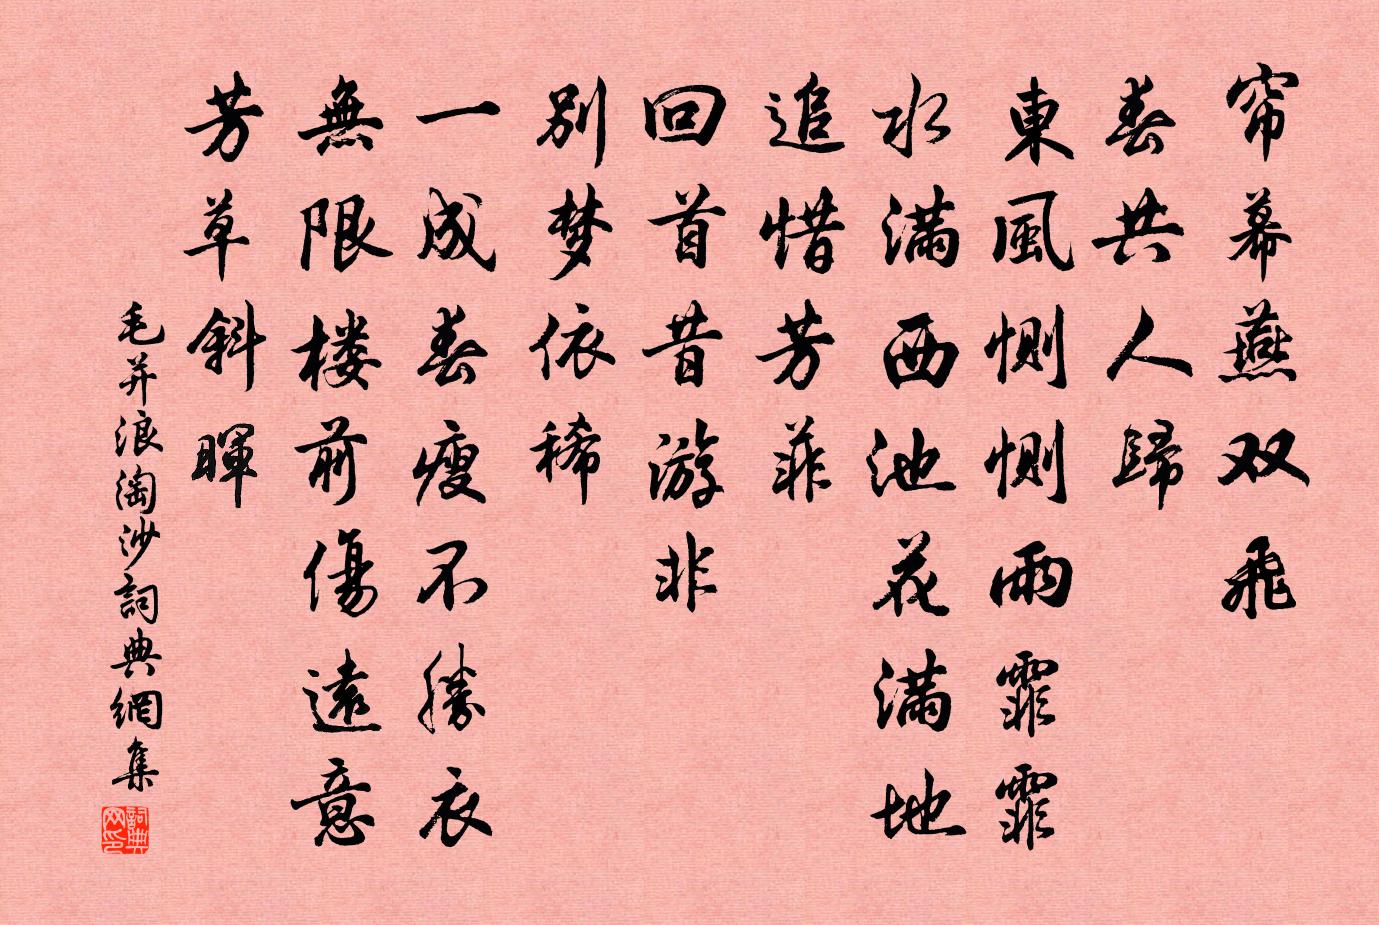 帘幕燕双飛
春共人歸
東風惻惻雨霏霏
水满西池花满地
追惜芳菲
回首昔游非
别梦依稀
一成春瘦不勝衣
無限楼前傷遠意
芳草斜暉
毛幵浪淘沙詞典網集
詞典
网印